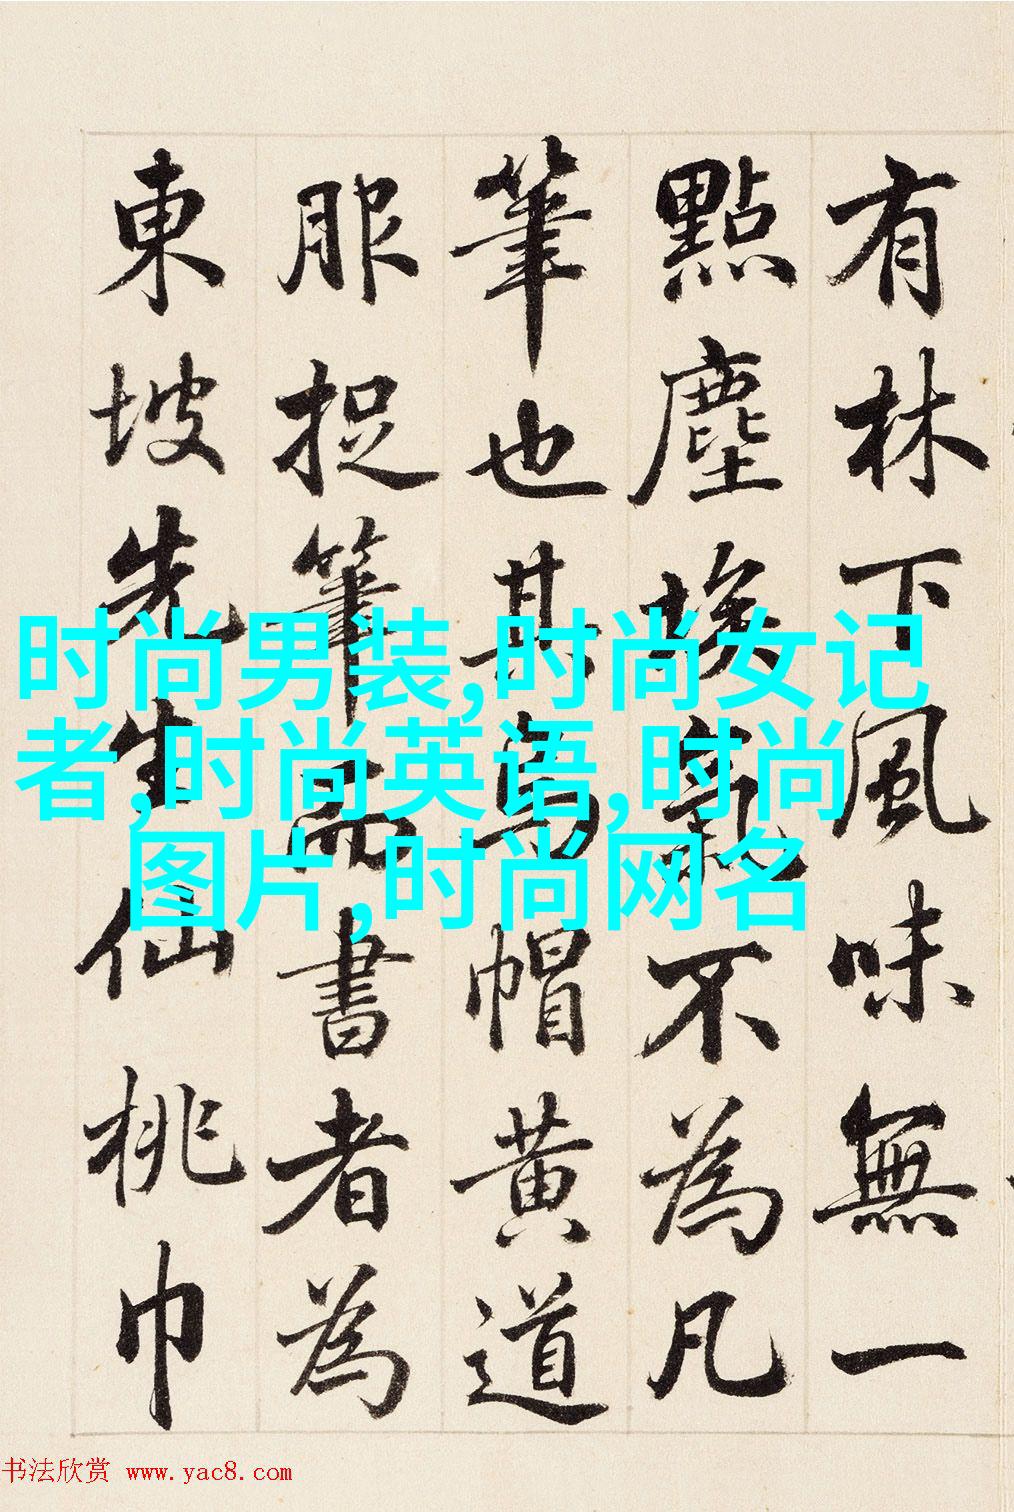 有林下風味無一
點塵埃氣不為凡
筆也其烏帽黃道
服捉筆而書者為
東坡先生仙桃巾
时尚男装,时尚女记
者,时尚英语,时尚
图片,时尚网名
书法欣赏 www.yac8.com